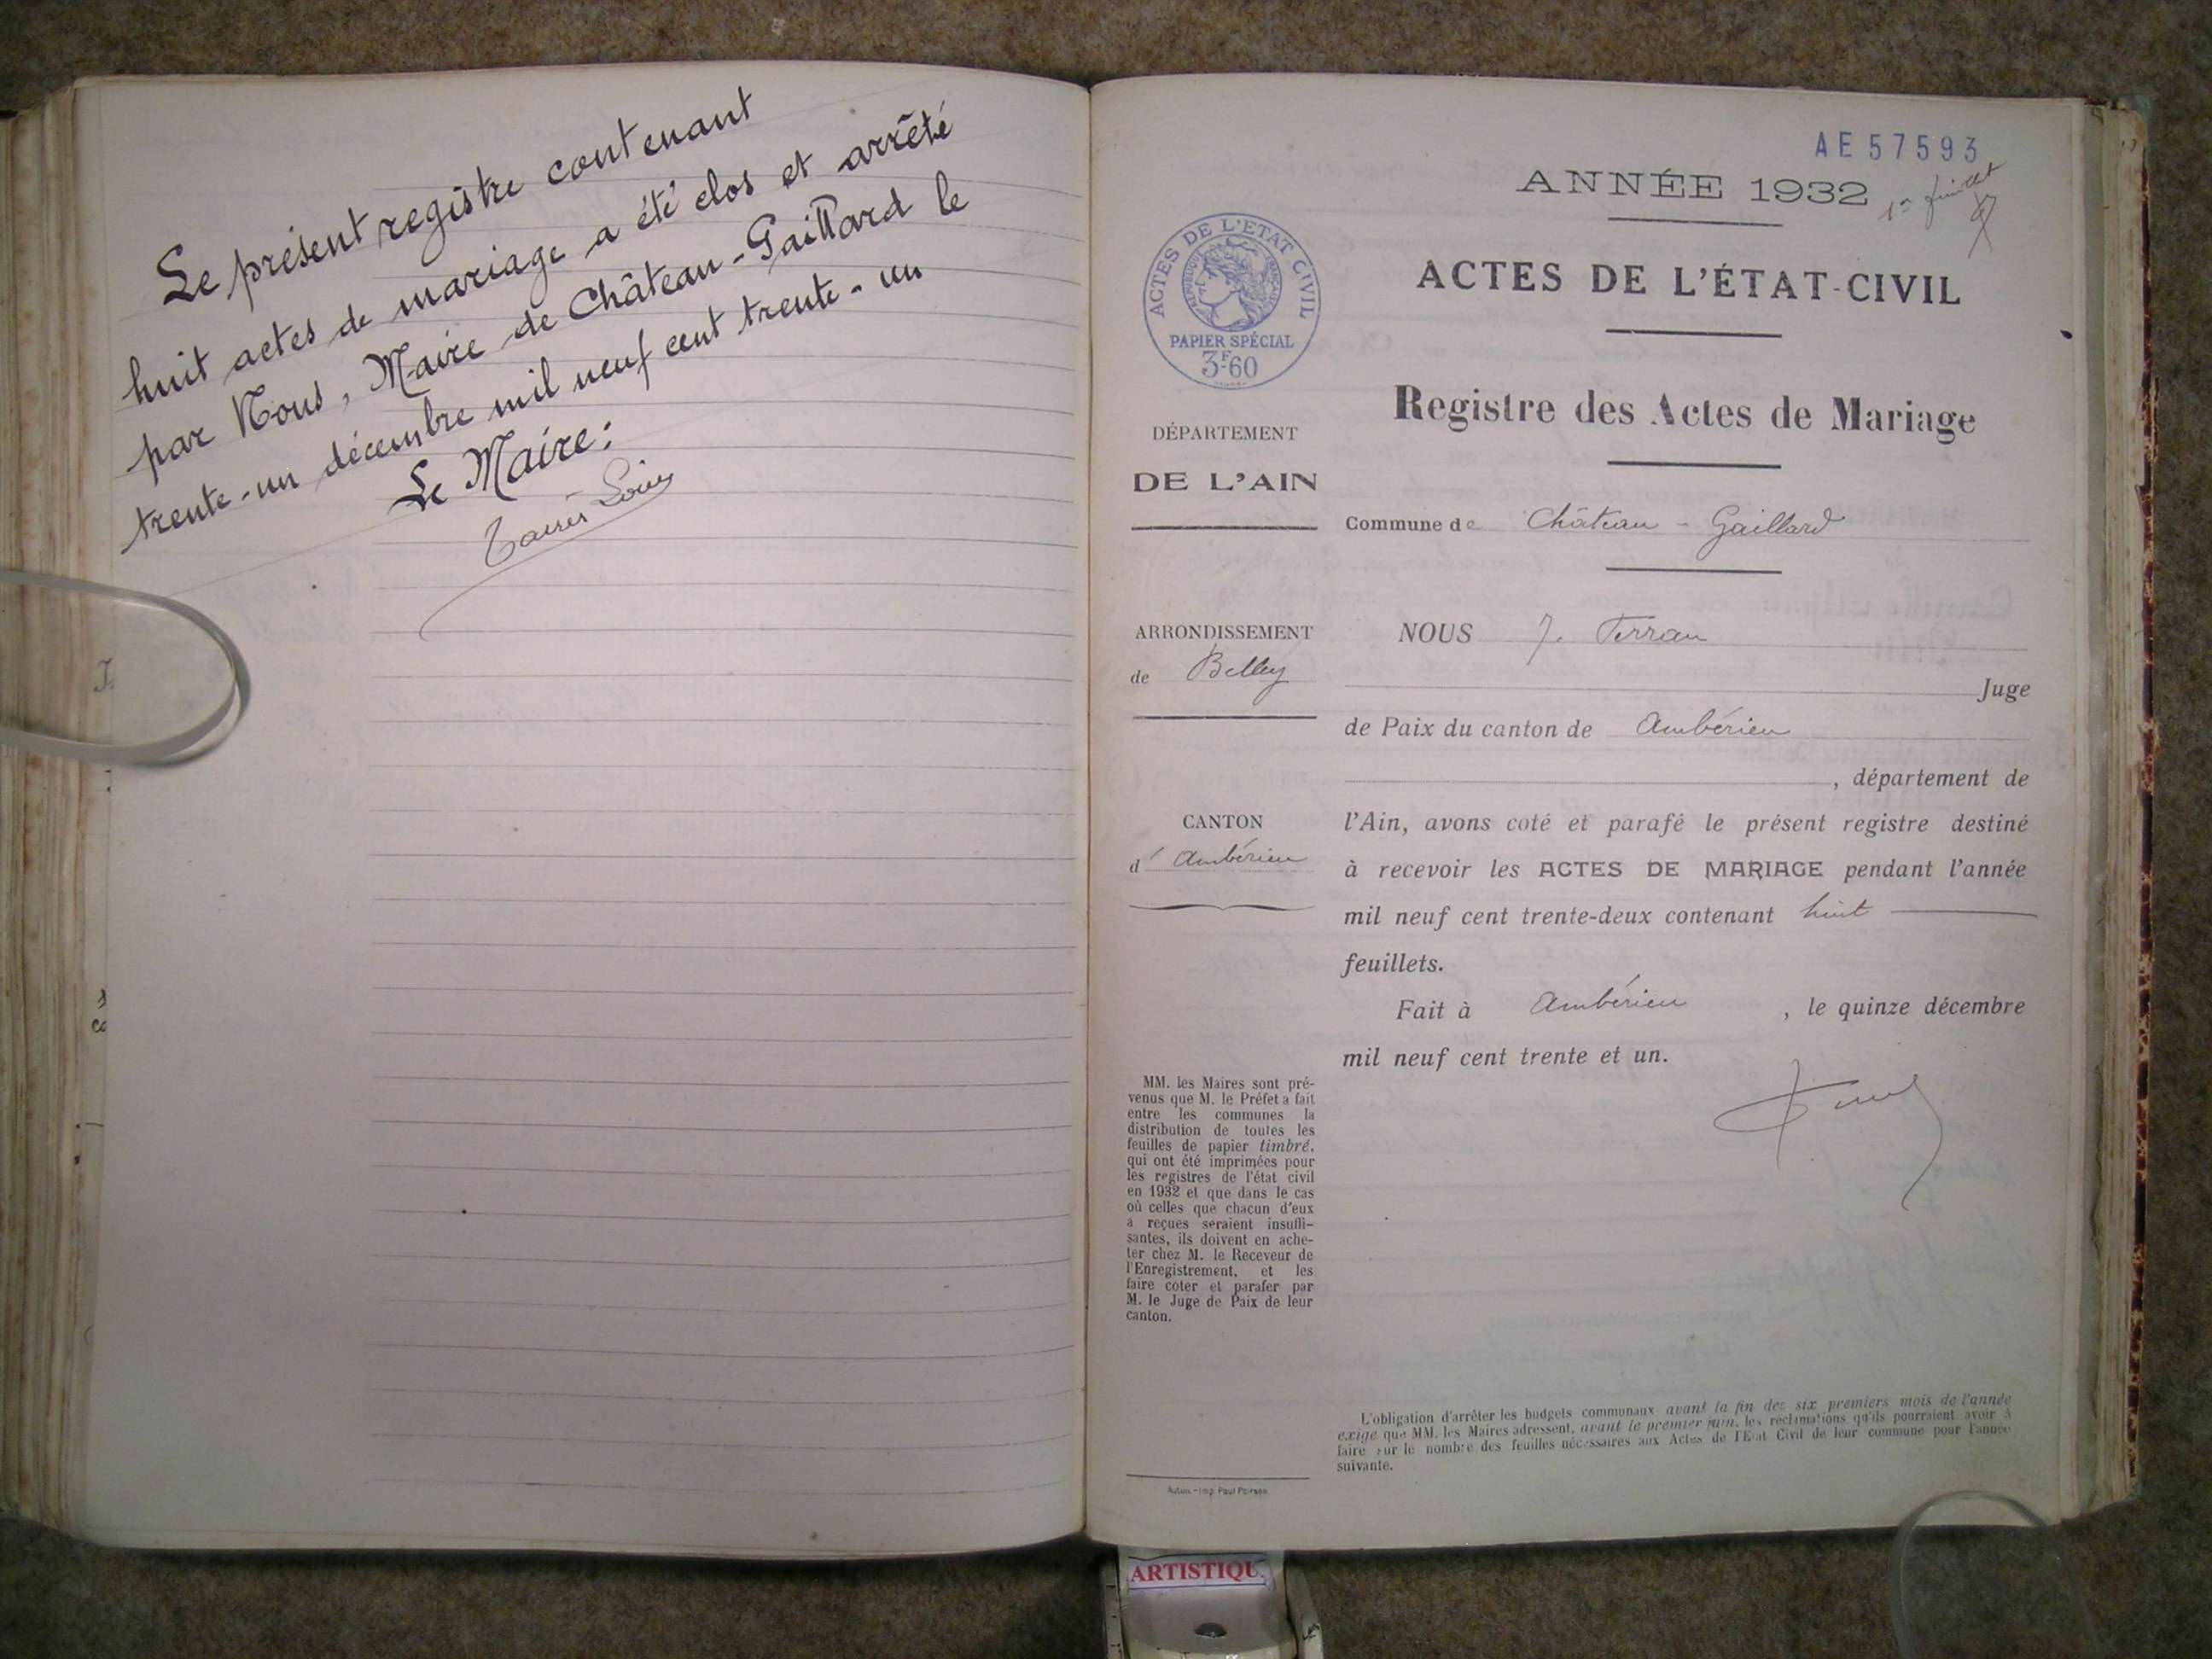 Le présent registre contenant
huit actes de mariage a été clos et arrêté
par Nous, Maire de Château-Gaillard le
trente-un décembre mil neuf cent trente-un
Le Maire:
AE 57593
ANNÉE 1932
1er feuillet
ACTES DE L'ÉTAT CIVIL
RÉPUBLIQUE FRANÇAISE
PAPIER SPÉCIAL
3F60
ACTES DE L'ÉTAT-CIVIL
Registre des Actes de Mariage
DÉPARTEMENT
DE L'AIN
Commune de Château-Gaillard
ARRONDISSEMENT
de Belley
CANTON
d'Ambérieu
NOUS J. Terran
Juge
de Paix du canton de Ambérieu
, département de
l'Ain, avons coté et parafé le présent registre destiné
à recevoir les ACTES DE MARIAGE pendant l'année
mil neuf cent trente-deux contenant huit
feuillets.
Fait à Ambérieu, le quinze décembre
mil neuf cent trente et un.
MM. les Maires sont pré-
venus que M. le Préfet a fait
entre les communes la
distribution de toutes les
feuilles de papier timbré,
qui ont été imprimées pour
les registres de l'état civil
en 1932 et que dans le cas
où celles que chacun d'eux
a reçues seraient insuffi-
santes, ils doivent en ache-
ter chez M. le Receveur de
l'Enregistrement, et les
faire coter et parafer par
M. le Juge de Paix de leur
canton.
L'obligation d'arrêter les budgets communaux avant la fin des six premiers mois de l'année
exige que MM. les Maires adressent, avant le premier juin, les réclamations qu'ils pourraient avoir à
faire sur le nombre des feuilles nécessaires aux Actes de l'Etat Civil de leur commune pour l'année
suivante.
Autun - Imp. Paul Poirson
ARTISTIQU